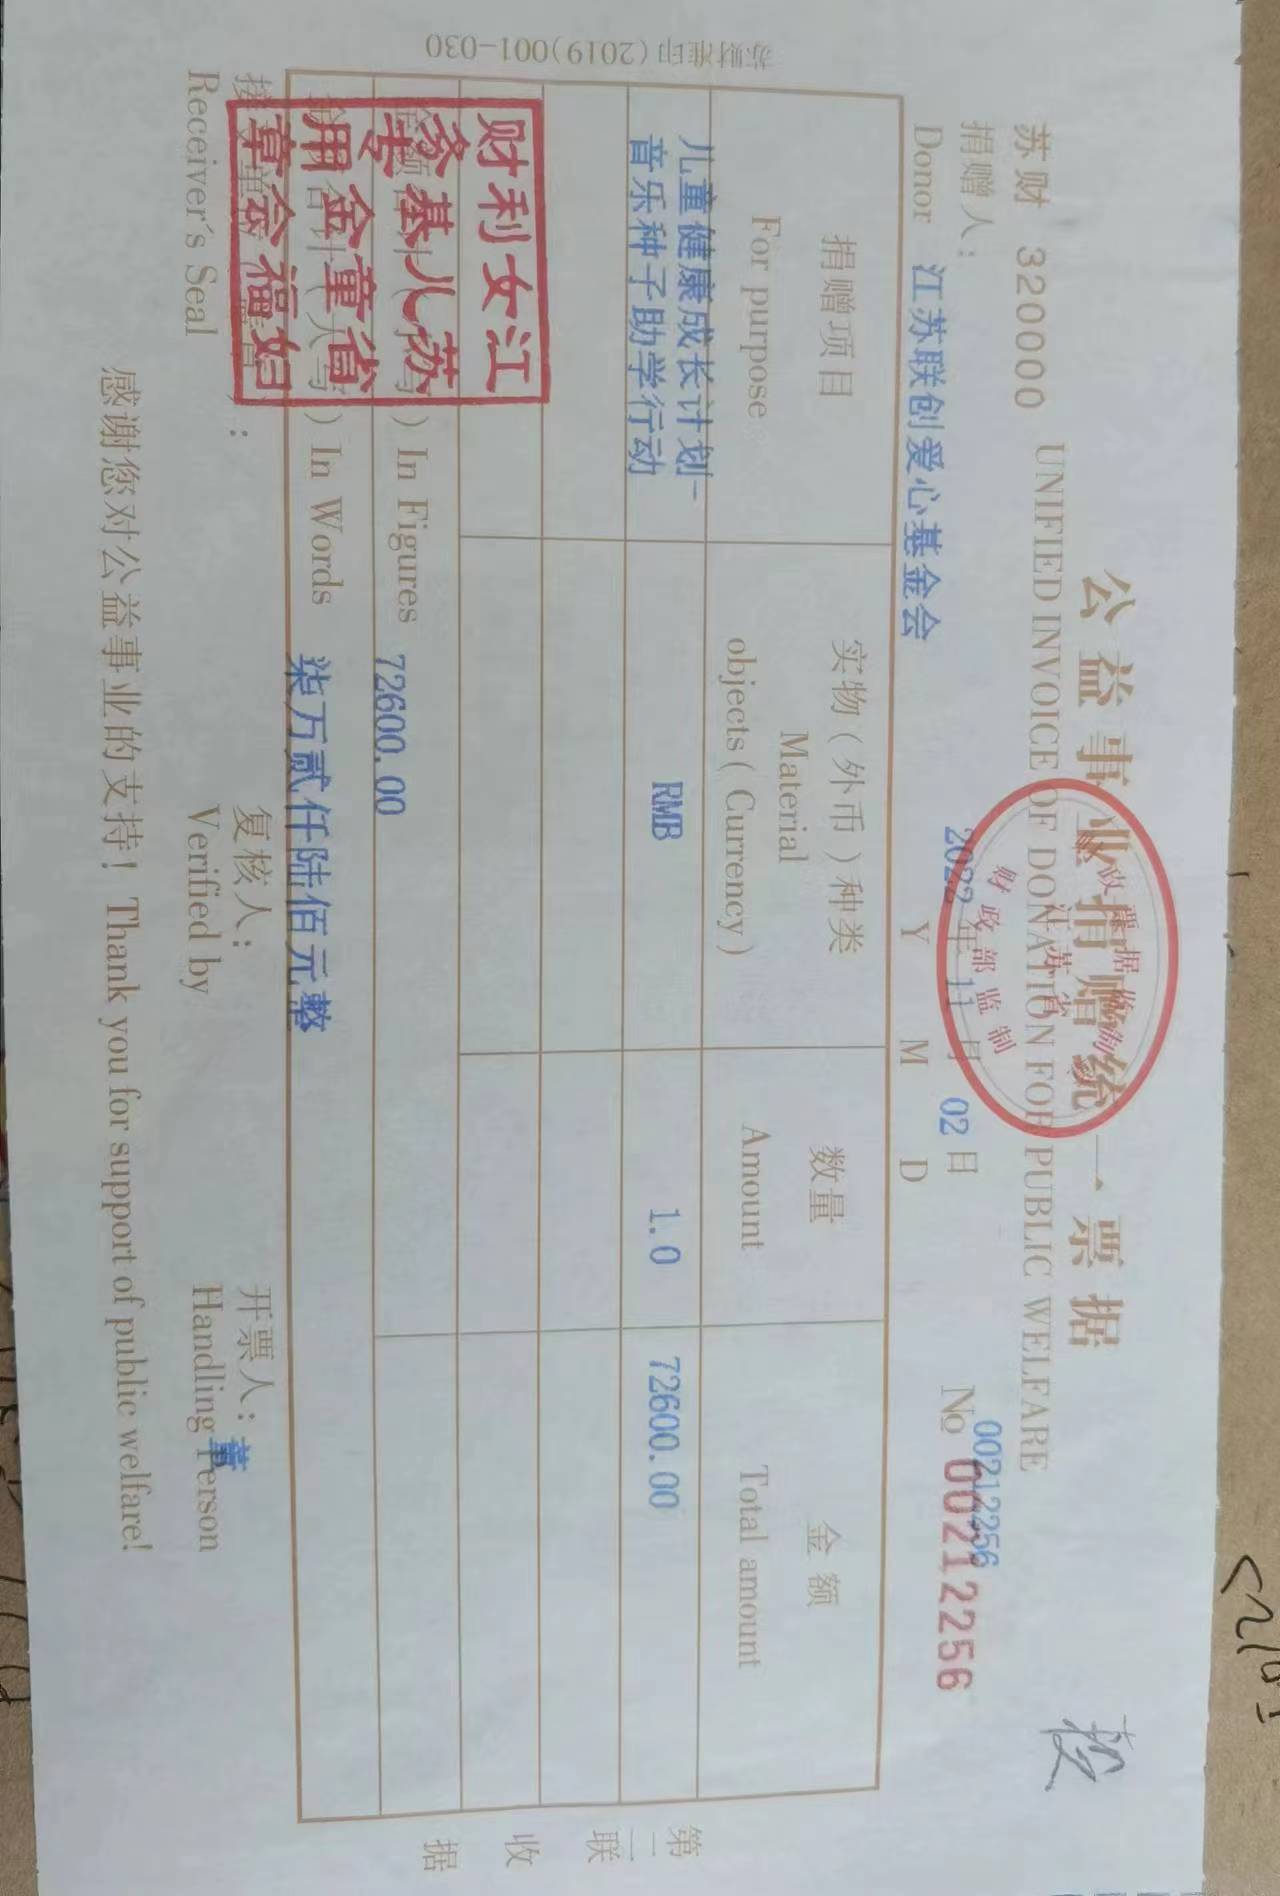 公益事业捐赠统一票据
UNIFIED INVOICE OF DONATION FOR PUBLIC WELFARE
苏财 320000
捐赠人：
Donor 江苏联创爱心基金会
2022 年 11 月 02 日
Y M D
00212256
№ 00212256
财政部监制
捐赠项目
For purpose
实物（外币）种类
Material
objects（Currency）
数量
Amount
金额
Total amount
儿童健康成长计划-
音乐种子助学行动
RMB
1.0
72600.00
）In Figures
72600.00
）In Words
柒万贰仟陆佰元整
江苏省妇
女儿童福
利基金会
财务专用章
Receiver's Seal
复核人：
Verified by
开票人：董
Handling Person
感谢您对公益事业的支持！Thank you for support of public welfare!
第二联 收据
苏财准印(2019)001-030